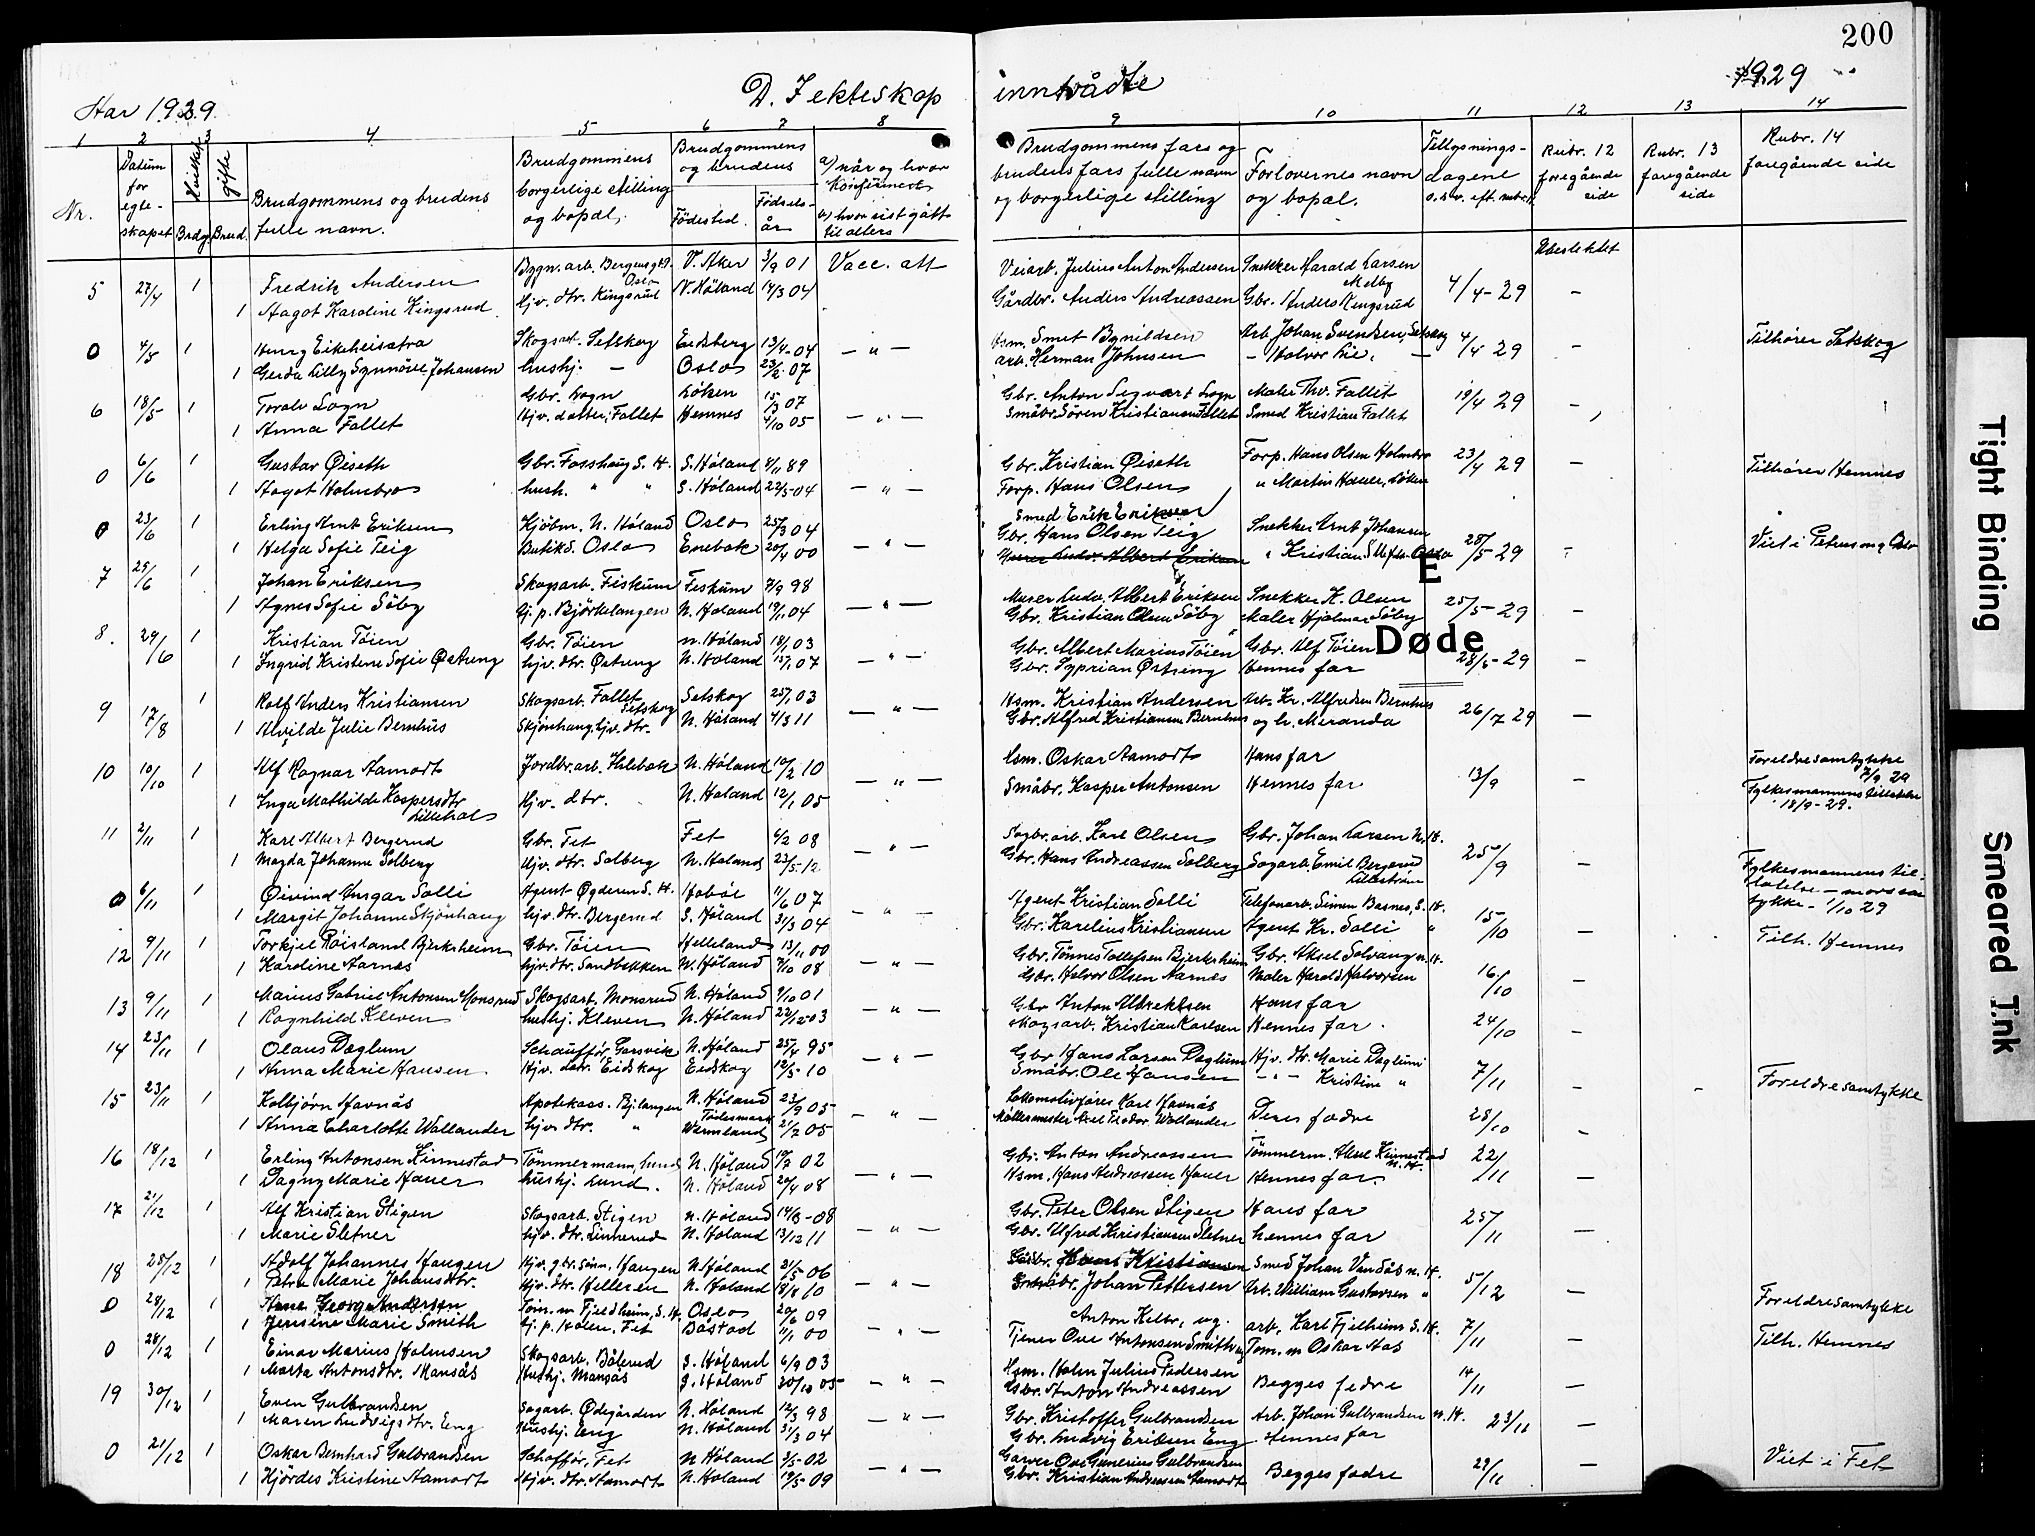 200
Har 1929.
D. Jekteskap
inntrådte
1929
1 2 3 4 5 6 7 8
9 10 11 12 13 14
Nr.
Datum for egteskapet
Brdg. Brud.
gifte
Brudgommens og brudens fulle navn.
Brudgommens borgerlige stilling og bopæl.
Brudgommens og brudens
Fødested.
Fødselsår
a) når og hvor konfirmert
b) hvor sist gått til alters
Brudgommens fars og brudens fars fulle navn og borgerlige stilling
Forlovernes navn og bopæl.
Tillysningsdagene
Rubr. 12 foregående side
Rubr. 13 foregående side
Rubr. 14 foregående side
5 27/4 1 Fredrik Andersen Bygn. arb. Bergensgt. Oslo V. Aker 3/9 01 Vacc. att Veiarb. Julius Anton Andersen Snekker Harald Larsen Melby 4/4-29 Ubeslektet
1 Aagot Karoline Kingsrud Hjv. dtr. Kingsrud N. Høland 14/3 04 Gårdbr. Anders Andreassen Gbr. Anders Kingsrud –
0 4/5 1 Henry Eikeheisetra Skogsarb. Setskog Eidsberg 13/4-04 – " – Arb. Johan Svendsen, Setskog 4/4 29 – Tilhører Setskog
1 Gerda Lilly Synnøve Johansen hushj. – Oslo 23/2-07 arb. Herman Johnsen – Halvor Lie, –
6 18/5 1 Toralv Sogn Gbr. Sogn Løken 15/3 07 Gbr. Anton Segvart Sogn Maler Thv. Fallet 19/4 29
1 Anna Fallet Hjv. datter, Fallet Hemnes 4/10 05 – " – Småbr. Søren Kristiansen Fallet Smed Kristian Fallet –
0 6/6 1 Gustav Øiseth Gbr. Fosshaug S. H. S. Høland 4/11 89 Gbr. Kristian Øiseth Forp. Hans Olsen Holmbro 23/4 29 – Tilhører Hemnes
1 Aagot Holmbro hush. " " S. Høland 22/5-04 – " – Forp. Hans Olsen " Martin Hauer, Løken
0 23/6 1 Erling Arnt Eriksen Kjøbm. N. Høland Oslo 25/3 04 Smed Erik Eriksen Snekker Arnt Johansen
1 Helga Sofie Teig Butikd. Oslo Enebak 20/4 00 – " – Gbr. Hans Olsen Teig 28/5 29 Viet i Petrus mg. Oslo
7 25/6 1 Johan Eriksen Skogsarb. Fiskum Fiskum 7/9 98 Murer Ludv. Albert Eriksen Snekker K. Olsen 25/5-29
1 Agnes Sofie Søby Hj. p. Bjørkelangen N. Høland 19/1 04 – " – Gbr. Kristian Olsen Søby Maler Hjalmar Søby –
8. 29/6 1 Kristian Tøien Gbr. Tøien N. Høland 18/1 03 Gbr. Albert Marius Tøien Gbr. Alf Tøien
E
Døde
1 Ingrid Kristine Sofie Østreng hjv. dtr. Østreng N. Høland 15/1 07 – " – Gbr. Syprian Østreng Hennes far 28/5-29 –
9 17/8 1 Rolf Anders Kristiansen Skogsarb. Fallet Setskog Setskog 25/1 03 Hsm. Kristian Andersen Arb. Kr. Alfredsen Bernhus 26/7 29 –
1 Alvilde Julie Bernhus Skjønhaug, hjv. dtr. N. Høland 4/3 11 – " – Gbr. Alfred Kristiansen Bernhus og h. Meranda
10 10/10 1 Alf Ragnar Aamodt Jordbr. arb. Hilebak N. Høland 10/2 10 Hsm. Oskar Aamodt Hans far 13/9 – Foreldresamtykke 7/9 29
1 Inga Mathilde Kaspersdtr. Lillehol Hjv. dtr. N. Høland 12/1 05 – " – Småbr. Kasper Antonsen Hennes far Fylkesmannens tillatelse 18/9-29.
11 2/11 1 Karl Albert Bergerud Gbr. Fet Fet 6/2 08 Sagbr. arb. Karl Olsen Gbr. Johan Larsen N. H. 25/9
1 Magda Johanne Solberg Hjv. dtr. Solberg N. Høland 23/5-12 – " – Gbr. Hans Andreassen Solberg Sagarb. Emil Bergerud Lillestrøm –
0 6/11 1 Øivind Ansgar Solli Agent Øgderen S. H. Hobøl 11/6 07 Agent Kristian Solli Telefonarb. Simen Basnes, S. H. 15/10 Fylkesmannens tillatelse – mors samtykke – 1/10 29
1 Margit Johanne Skjønhaug hjv. dtr. Bergerud S. Høland 31/3 04 – " – Gbr. Karelius Kristiansen Agent Kr. Solli " – Tilh. Hemnes
12 9/11 1 Torkjel Røisland Bjerksheim Gbr. Tøien Helleland 13/11 00 Gbr. Tønnes Tollefsen Bjerksheim Gbr. Aksel Solvang N. H.
1 Karoline Aarnes hjv. dtr. Sandbekken N. Høland 7/10 08 – " – Gbr. Halvor Olsen Aarnes Maler Harald Halvorsen 16/10 –
13 9/11 1 Marius Gabriel Antonsen Monsrud Skogsarb. Monsrud N. Høland 9/10 01 Gbr Anton Albrektsen Hans far
1 Ragnhild Kleven hushj. Kleven N. Høland 22/12-03 – " – Skogsarb. Kristian Karlsen Hennes far. 24/10 –
14 23/11 1 Olaus Daglum Schauffør, Garsvik N. Høland 25/4 95 Gbr Hans Larsen Daglum Hjv. dtr. Marie Daglum 7/11
1 Anna Marie Hansen Hjv. dtr. Eidskog Eidskog 12/5-10 – " – Småbr. Ole Hansen – " – Kristine " – Foreldresamtykke
15 23/11 1 Kolbjørn Havnås Apotekass. Bj.langen N. Høland 23/9 05 Lokomotivfører Karl Havnås
1 Anna Charlotte Wallander hjv. dtr. " Tødesmark Wermland 21/2 05 – " – Møllermester Axel Teodor Wallander Deres fædre 28/10 –
16 18/12 1 Erling Antonsen Kinnestad Tømmermann, Lund N. Høland 19/7 02 Gbr. Anton Andreassen Tømmerm. Aksel Kinnestad N. H. 22/11
1 Dagny Marie Hauer hushj. Lund. N. Høland 20/4 08 – " – Hsm. Hans Andreassen Hauer Hennes far. –
17 21/12 1 Alf Kristian Stigen Skogsarb. Stigen N. Høland 14/3-08 Gbr. Peter Olsen Stigen Hans far
1 Marie Sletner hjv. dtr. Linnerud N. Høland 13/12 11 – " – Gbr. Alfred Kristiansen Sletner hennes far 25/11 –
18 25/12 1 Adolf Johannes Haugen Hjv. gbr. sønn. Haugen N. Høland 21/5 06 Gbr. Hans Kristiansen Smed Johan Vandsås N. H.
1 Petra Marie Johansdtr. Hjv. dtr. Helleren N. Høland 18/8 10 – " – Småbr. Johan Pettersen Arb. William Gustavsen " 5/12 –
0 28/12 1 Arne Georg Andersen Tøm. m Fjeldheim, S. H. Oslo 20/6 09 Anton Kelbo, ug. arb. Karl Fjelheim S. H. 7/11 Foreldresamtykke
1 Jensine Marie Smith hj. p. Holen, Fet Båstad 11/1 00 – " – Tjener Ove Antonsen Smith ug Tøm. m Oskar Aas Tilh. Hemnes
0 28/12 1 Einar Marius Holmsen Skogsarb. Båterud S. Høland 6/9 03 Hsm. Holm Julius Pedersen
1 Marta Antonsdtr. Mansås Hushj. Mansås S. Høland 20/10 05 – " – Gbr. Anton Andreassen Begges fedre 14/11 –
19 30/12 1 Even Gulbrandsen Sagarb. Ødegården N. Høland 12/3 98 Gbr. Kristoffer Gulbrandsen Arb. Johan Gulbrandsen N. H. 23/11 –
1 Maren Ludvigsdtr. Eng Hushj. Eng N. Høland 31/3 04 – " – Gbr. Ludvig Eriksen Eng Hennes far
0 21/12 1 Oskar Bernhard Gulbrandsen Schoffør, Fet N. Høland 3/5-02 Garver Ove Gunerius Gulbrandsen – Viet i Fet
1 Hjørdes Kristine Aamodt Hjv. dtr. Aamodt N. Høland 19/5-09 – " – Gbr. Kristian Andreassen Aamodt Begges fædre 29/11
Tight Binding
Smeared Ink